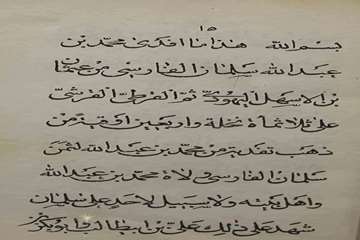 ١٥
بسم الله هذا ما افدى محمد بن
عبد الله سلمان الفارسي من عثمان
بن الاسهل اليهودي ثم القرظي
على ثلاثماة نخلة واربعين اوقية من
ذهب محمد بن عبد الله لثمن
سلمان الفارسي ولاه محمد بن عبد الله
واهل بيته ولا سبيل لاحد على سلمان
شهد على ذلك علي بن ابي طالب وابو بكر